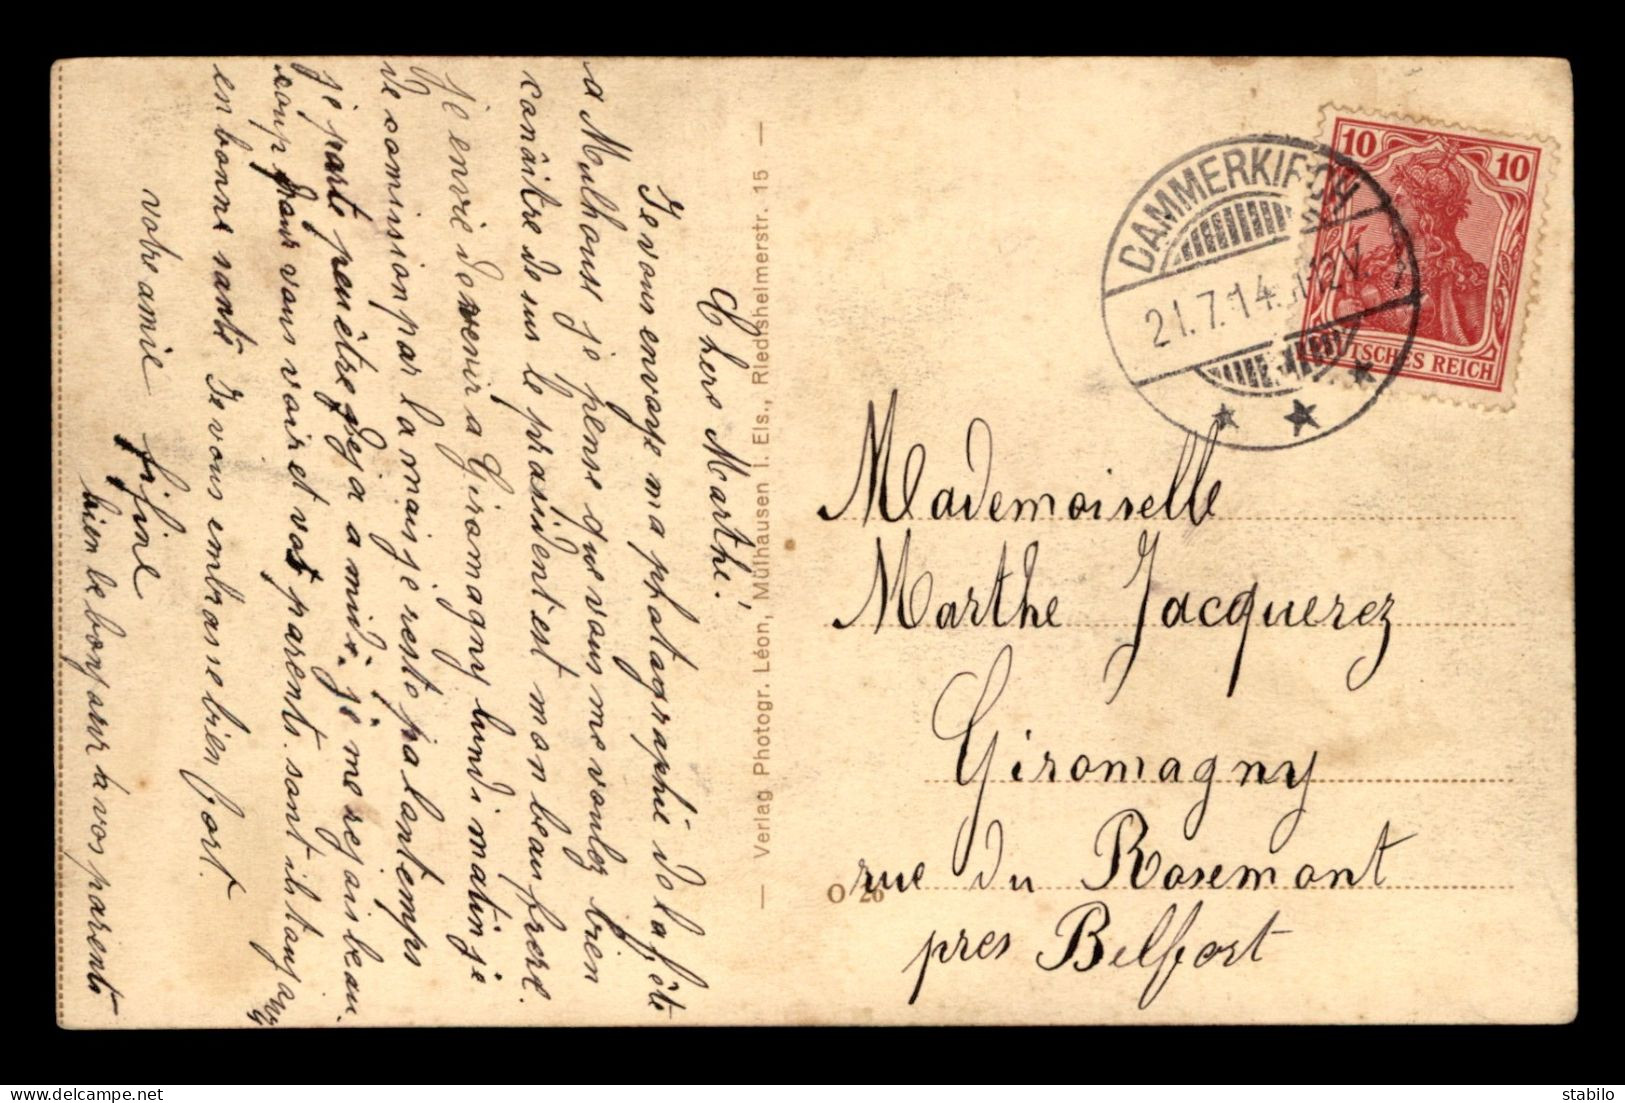 Chers Marthe.
Je vous envoye ma photographie de la fête
a Mulhouse je pense que vous me voulez bien
conâitre de sus le prasident est mon beau frere.
j'ai envie de venir a Giromagny lundi matin je
de comission par la mais je reste pa lontemps
je parte peu être deja a midi. je me rejois beau
coup pour vous voir et vos parents. sont ils toujours
en bonne santé Je vous embrasse bien fort.
votre amie
fifine
bien le bonjour a vos parents
— Verlag Photogr. Léon, Mülhausen i. Els., Riedisheimerstr. 15 —
O 26
DAMMERKIRCH
21.7.14. 12 V.
10 10
DEUTSCHES REICH
Mademoiselle
Marthe Jacquerez
Giromagny
rue du Rosemont
pres Belfort
stabilo